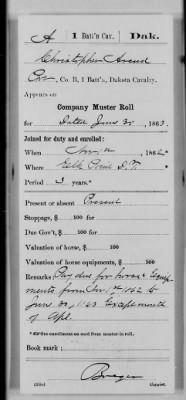 A 1 Batt'n Cav. Dak.
Christopher Arend
Pvt., Co. B, 1 Batt'n, Dakota Cavalry.
Appears on
Company Muster Roll
for Dated June 30, 1863.
Joined for duty and enrolled:
When 186
Where Elk Point D.T.
Period 3 years.*
Present or absent Present
Stoppage, $ 100 for
Due Gov't, $ 100 for
Valuation of horse, $ 100
Valuation of horse equipments, $ 100
Remarks: Pay due for horse & Equip
ments from Nov 1st 1862 to
June 30, 1863 Except month
of Apl.
*See enrollment on card from muster-in roll.
Book mark:
(358c) Copyist.